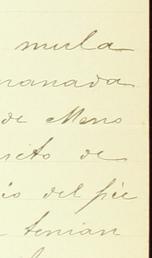 mula
nanada
de Mens
reto de
io del pie
tenian